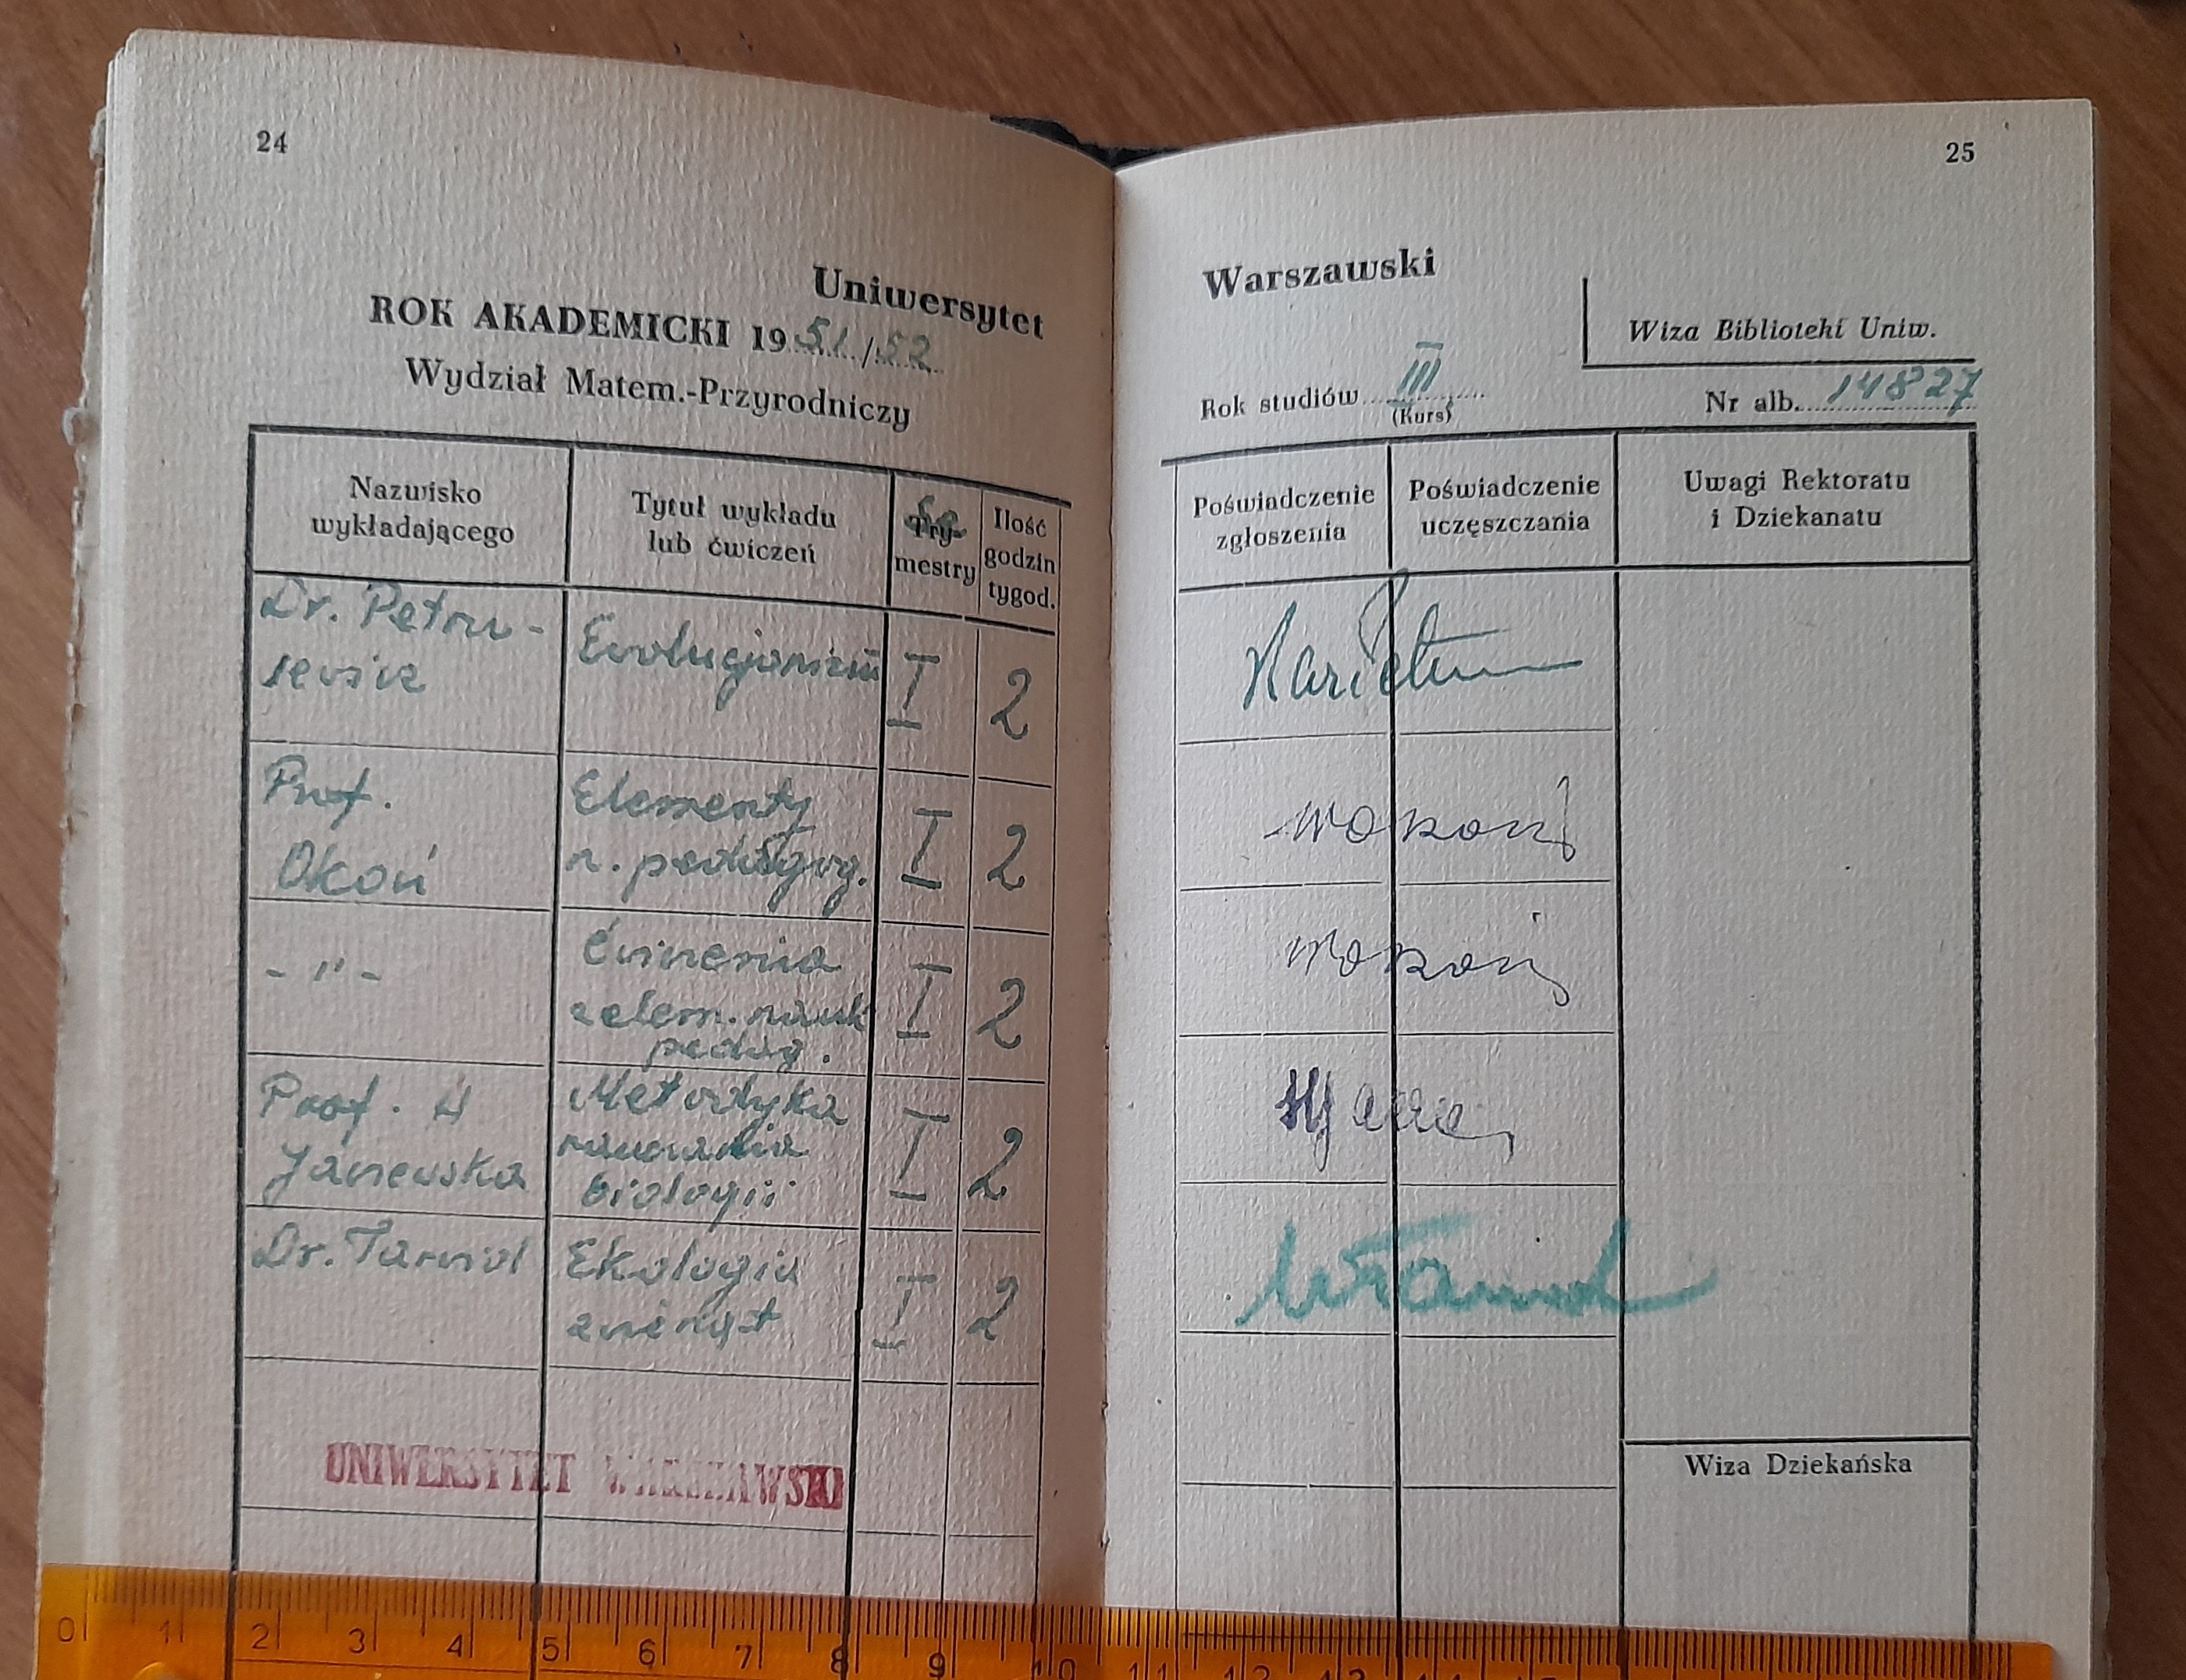 24
Uniwersytet
ROK AKADEMICKI 1951/52
Wydział Matem.-Przyrodniczy
Nazwisko
wykładającego
Tytuł wykładu
lub ćwiczeń
Se
Try-
mestry
Ilość
godzin
tygod.
Dr. Petru-
sewicz
Ewolucjonizm
I
2
Prof.
Okoń
Elementy
n. pedagog.
I
2
- " -
Ćwiczenia
z elem. nauk
pedag.
I
2
Prof.
Janewska
Metodyka
nauczania
biologii
I
2
Dr. Tarwid
Ekologia
zwierząt
I
2
UNIWERSYTET WARSZAWSKI
25
Warszawski
Wiza Biblioteki Uniw.
Rok studiów III
(Kurs)
Nr alb. 14827
Poświadczenie
zgłoszenia
Poświadczenie
uczęszczania
Uwagi Rektoratu
i Dziekanatu
WOkoń
WOkoń
Wiza Dziekańska
0 1 2 3 4 5 6 7 8 9 10 11 12 13